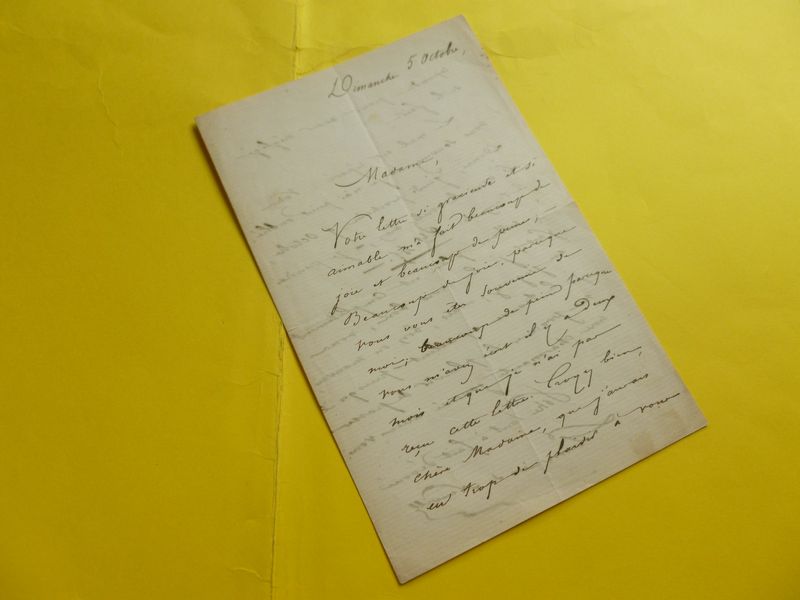 Dimanche 5 Octobre,
Madame,
Votre lettre si gracieuse et si
aimable m'a fait beaucoup de
joie et beaucoup de peine, _
Beaucoup de joie, parceque
vous vous êtes souvenue de
moi; beaucoup de peine parceque
vous m'avez écrit il y a deux
mois et que je n'ai pas
reçu cette lettre. Croyez bien,
chère Madame, que j'aurais
eu trop de plaisir à vous